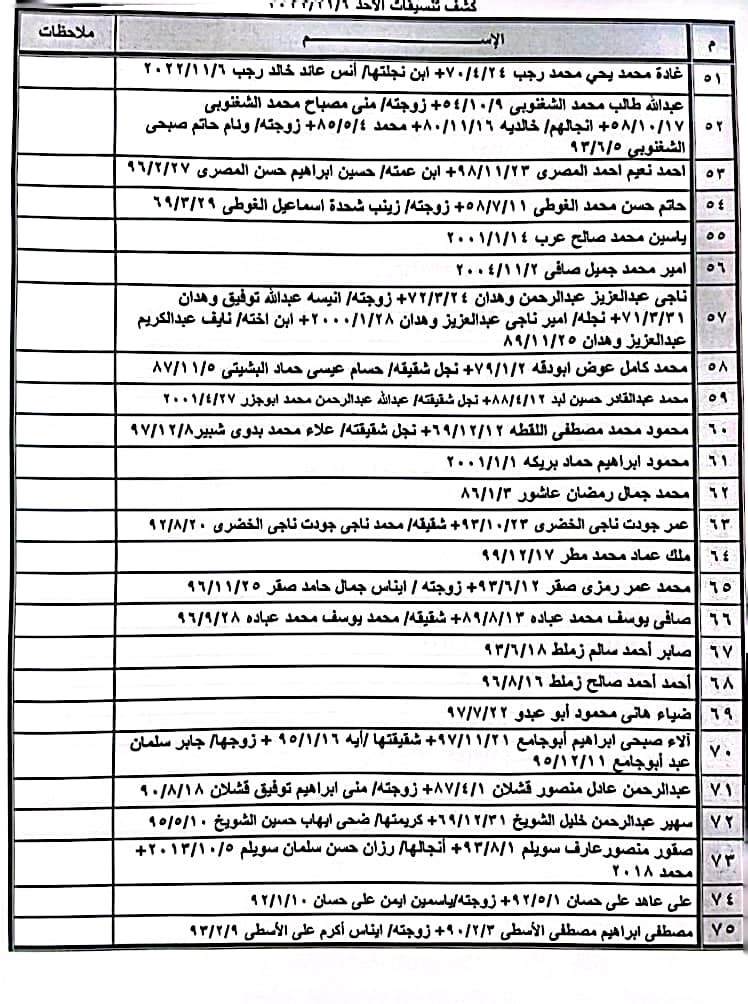 كشف تنسيقات الأحد
م الإســـــــــم ملاحظات
٥١ غادة محمد يحي محمد رجب ٧٠/٤/٢٤+ ابن نجلتها/ أنس عائد خالد رجب ٢٠٢٢/١١/٦
٥٢ عبدالله طالب محمد الشغنوبى ٥٤/١٠/٩+ زوجته/ منى مصباح محمد الشغنوبى
٥٨/١٠/١٧+ انجالهم/ خالديه ٨٠/١١/١٦+ محمد ٨٥/٥/٤+ زوجته/ ونام حاتم صبحى
الشغنوبى ٩٣/٦/٥
٥٣ احمد نعيم احمد المصرى ٩٨/١١/٢٣+ ابن عمته/ حسين ابراهيم حسن المصرى ٩٦/٢/٢٧
٥٤ حاتم حسن محمد الغوطى ٥٨/٧/١١+ زوجته/ زينب شحدة اسماعيل الغوطى ٦٩/٣/٢٩
٥٥ ياسين محمد صالح عرب ٢٠٠١/١/١٤
٥٦ امير محمد جميل صافى ٢٠٠٤/١١/٢
٥٧ ناجى عبدالعزيز عبدالرحمن وهدان ٧٢/٣/٢٤+ زوجته/ انيسه عبدالله توفيق وهدان
٧١/٣/٣١+ نجله/ امير ناجى عبدالعزيز وهدان ٢٠٠٠/١/٢٨+ ابن اخته/ نايف عبدالكريم
عبدالعزيز وهدان ٨٩/١١/٢٥
٥٨ محمد كامل عوض ابودقه ٧٩/١/٢+ نجل شقيقه/ حسام عيسى حماد البشيتى ٨٧/١١/٥
٥٩ محمد عبدالقادر حسين لبد ٨٨/٤/١٢+ نجل شقيقته/ عبدالله عبدالرحمن محمد ابوجزر ٢٠٠١/٤/٢٧
٦٠ محمود محمد مصطفى اللقطه ٦٩/١٢/١٢+ نجل شقيقته/ علاء محمد بدوى شبير٩٧/١٢/٨
٦١ محمود ابراهيم حماد بريكه ٢٠٠١/١/١
٦٢ محمد جمال رمضان عاشور ٨٦/١/٣
٦٣ عمر جودت ناجى الخضرى ٩٣/١٠/٢٣+ شقيقه/ محمد ناجى جودت ناجى الخضرى ٩٢/٨/٢٠
٦٤ ملك عماد محمد مطر ٩٩/١٢/١٧
٦٥ محمد عمر رمزى صقر ٩٣/٦/١٢+ زوجته / ايناس جمال حامد صقر ٩٦/١١/٢٥
٦٦ صافى يوسف محمد عباده ٨٩/٨/١٣+ شقيقه/ محمد يوسف محمد عباده ٩٦/٩/٢٨
٦٧ صابر أحمد سالم زملط ٩٣/٦/١٨
٦٨ أحمد أحمد صالح زملط ٩٦/٨/١٦
٦٩ ضياء هانى محمود أبو عبدو ٩٧/٧/٢٢
٧٠ آلاء صبحى ابراهيم أبوجامع ٩٧/١١/٢١+ شقيقتها /أيه ٩٥/١/١٦ + زوجها/ جابر سلمان
عبد أبوجامع ٩٥/١٢/١١
٧١ عبدالرحمن عادل منصور قشلان ٨٧/٤/١+ زوجته/ منى ابراهيم توفيق قشلان ٩٠/٨/١٨
٧٢ سهير عبدالرحمن خليل الشويخ ٦٩/١٢/٣١+ كريمتها/ ضحى ايهاب حسين الشويخ ٩٥/٥/١٠
٧٣ صقور منصور عارف سويلم ٩٣/٨/١+ أنجالها/ رزان حسن سلمان سويلم ٢٠١٣/١٠/٥+
محمد ٢٠١٨
٧٤ على عاهد على حسان ٩٢/٥/١+ زوجته/ياسمين ايمن على حسان ٩٢/١/١٠
٧٥ مصطفى ابراهيم مصطفى الأسطى ٩٠/٢/٣+ زوجته/ ايناس أكرم على الأسطى ٩٣/٢/٩